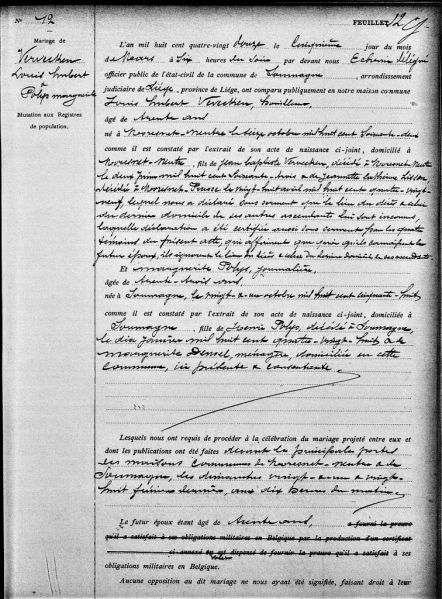 N° 12
FEUILLET 12
Mariage de
Vervecken
Louis Hubert
&
Polys marguerite
Mutation aux Registres
de population.
L'an mil huit cent quatre-vingt douze le cinquième jour du mois
de Mars à Six heures du Soir par devant nous Echevin délégué
officier public de l'état-civil de la commune de Soumagne, arrondissement
judiciaire de Liége, province de Liége, ont comparu publiquement en notre maison commune
Louis Hubert Vervecken, houilleur
âgé de trente ans
né à Moresnet-Neutre le seize octobre mil huit cent soixante-deux
comme il est constaté par l'extrait de son acte de naissance ci-joint, domicilié à
Moresnet-Neutre, fils de Jean Baptiste Vervecken, décédé à Moresnet-Neutre
le deux Juin mil huit cent soixante-trois & de Jeannette Catherine
décédée à Moresnet-Prusse le vingt-huit avril mil huit cent quatre-vingt-
neuf, lequel nous a déclaré sous serment que le lieu du décès & celui
du dernier domicile de ses autres ascendants lui sont inconnus,
laquelle déclaration a été certifiée aussi sous serment par les quatre
témoins du présent acte, qui affirment que quoiqu'ils connaissent le
futur époux, ils ignorent le lieu du décès & celui du dernier domicile de ses
Et marguerite Polys, journalière,
âgée de trente-trois ans
née à Soumagne, le vingt-&-un octobre mil huit cent cinquante-huit
comme il est constaté par l'extrait de son acte de naissance ci-joint, domiciliée à
Soumagne, fille de Polys, décédé à Soumagne,
le dix Janvier mil huit cent quatre-vingt-huit & de
marguerite ménagère, domiciliée en cette
commune, ici présente & consentante.
Lesquels nous ont requis de procéder à la célébration du mariage projeté entre eux et
dont les publications ont été faites devant les principales portes
des maisons communes de Moresnet-Neutre & de
Soumagne, les dimanches vingt-&-un & vingt-
huit février dernier, aux dix heures du matin.
Le futur époux étant âgé de trente ans, a fourni la preuve
qu'il a satisfait à ses obligations militaires en Belgique par la production d'un certificat
ci-annexé ou est dispensé de fournir la preuve qu'il a satisfait à ses
obligations militaires en Belgique.
Aucune opposition au dit mariage ne nous ayant été signifiée, faisant droit à leur